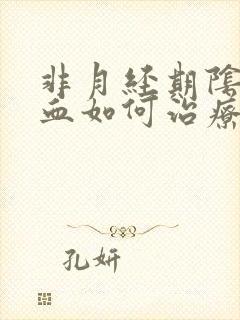 非月经期陰
血如何治療
孔妍